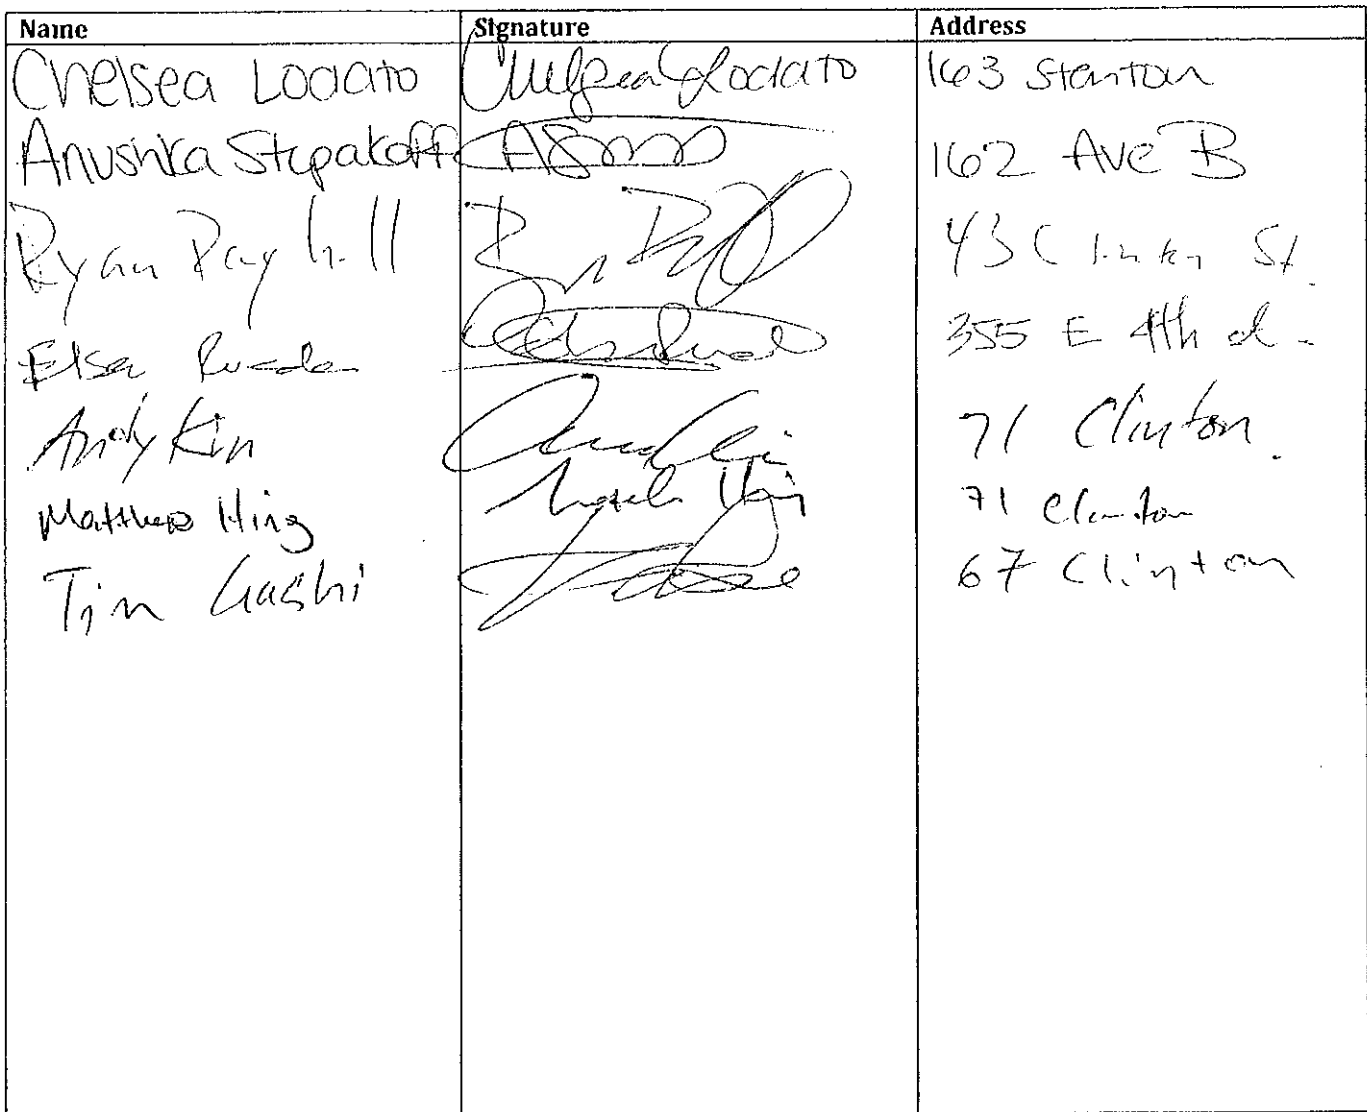 Name Signature Address
Chelsea Lodato Chelsea Lodato 163 Stanton
Anushka Stepakoff 162 Ave B
Ryan Rayhill 43 Clinton St.
Elsa Rueda 355 E 4th
Andy Kim 71 Clinton.
Matthew Hing 71 Clinton
Tim Gashi 67 Clinton